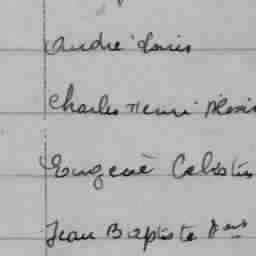 André Louis
Charles Henri Alexis
Eugène Célestin
Jean Baptiste